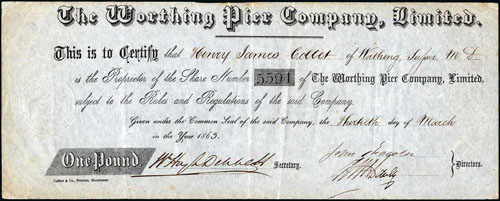 The Worthing Pier Company, Limited.
This is to Certify that Henry James Collet of Worthing, Sussex M D
is the Proprietor of the Share Number 5594 of The Worthing Pier Company, Limited,
subject to the Rules and Regulations of the said Company.
Given under the Common Seal of the said Company, the Thirtieth day of March
in the Year 1863.
One Pound. Wm Hugh Dennett Secretary.
Directors.